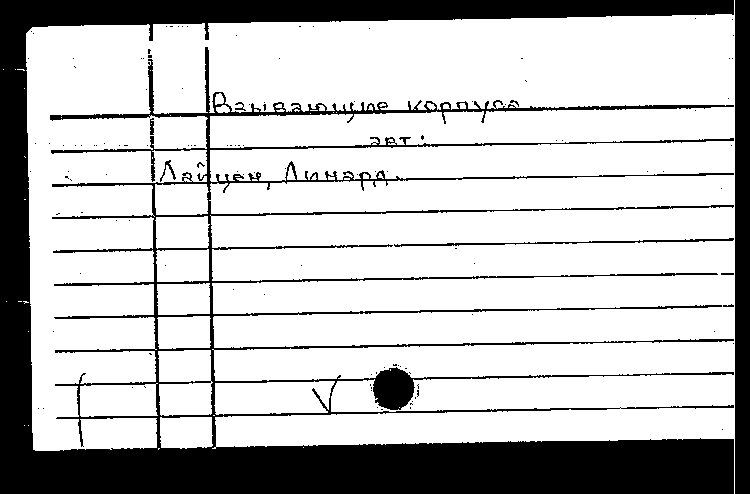 Взывающие корпуса
авт:
Лайцен, Линард.